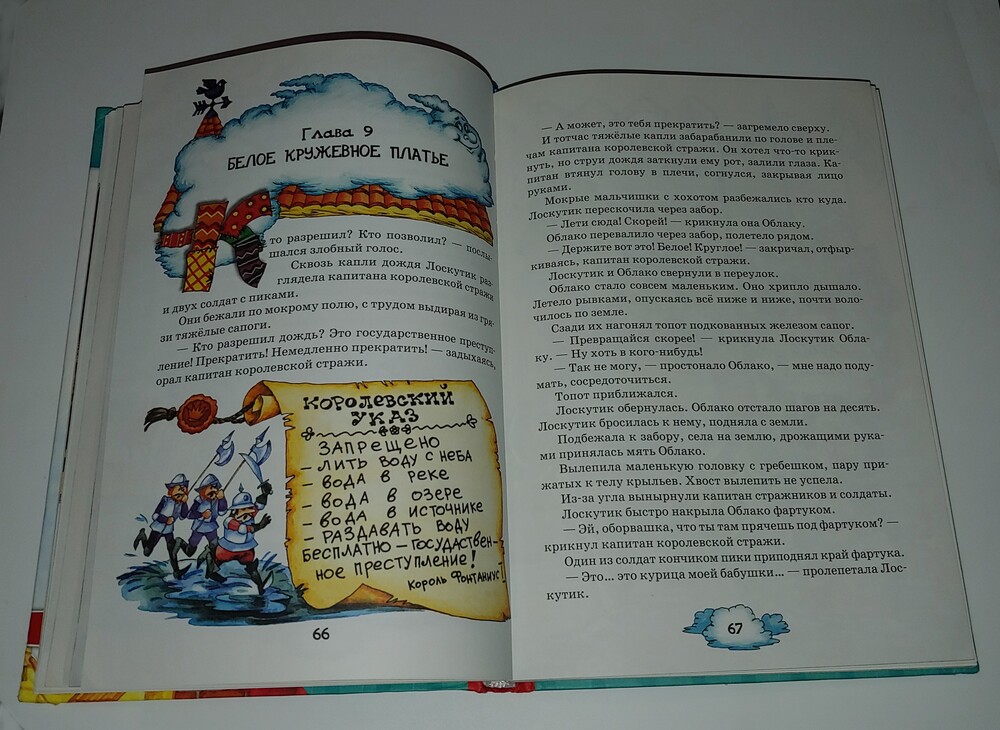 Глава 9
БЕЛОЕ КРУЖЕВНОЕ ПЛАТЬЕ
Кто разрешил? Кто позволил? — послы-
шался злобный голос.
Сквозь капли дождя Лоскутик раз-
глядела капитана королевской стражи
и двух солдат с пиками.
Они бежали по мокрому полю, с трудом выдирая из гря-
зи тяжёлые сапоги.
— Кто разрешил дождь? Это государственное преступ-
ление! Прекратить! Немедленно прекратить! — задыхаясь,
орал капитан королевской стражи.
КОРОЛЕВСКИЙ
УКАЗ
ЗАПРЕЩЕНО
– ЛИТЬ ВОДУ С НЕБА
– ВОДА В РЕКЕ
– ВОДА В ОЗЕРЕ
– ВОДА В ИСТОЧНИКЕ
– РАЗДАВАТЬ ВОДУ
БЕСПЛАТНО – ГОСУДАРСТВЕН-
НОЕ ПРЕСТУПЛЕНИЕ!
КОРОЛЬ ФОНТАНИУС
66
— А может, это тебя прекратить? — загремело сверху.
И тотчас тяжёлые капли забарабанили по голове и пле-
чам капитана королевской стражи. Он хотел что-то крик-
нуть, но струи дождя заткнули ему рот, залили глаза. Ка-
питан втянул голову в плечи, согнулся, закрывая лицо
руками.
Мокрые мальчишки с хохотом разбежались кто куда.
Лоскутик перескочила через забор.
— Лети сюда! Скорей! — крикнула она Облаку.
Облако перевалило через забор, полетело рядом.
— Держите вот это! Белое! Круглое! — закричал, отфыр-
киваясь, капитан королевской стражи.
Лоскутик и Облако свернули в переулок.
Облако стало совсем маленьким. Оно хрипло дышало.
Летело рывками, опускаясь всё ниже и ниже, почти воло-
чилось по земле.
Сзади их нагонял топот подкованных железом сапог.
— Превращайся скорее! — крикнула Лоскутик Обла-
ку. — Ну хоть в кого-нибудь!
— Так не могу, — простонало Облако, — мне надо поду-
мать, сосредоточиться.
Топот приближался.
Лоскутик обернулась. Облако отстало шагов на десять.
Лоскутик бросилась к нему, подняла с земли.
Подбежала к забору, села на землю, дрожащими рука-
ми принялась мять Облако.
Вылепила маленькую головку с гребешком, пару при-
жатых к телу крыльев. Хвост вылепить не успела.
Из-за угла вынырнули капитан стражников и солдаты.
Лоскутик быстро накрыла Облако фартуком.
— Эй, оборвашка, что ты там прячешь под фартуком? —
крикнул капитан королевской стражи.
Один из солдат кончиком пики приподнял край фартука.
— Это... это курица моей бабушки... — пролепетала Лос-
кутик.
67